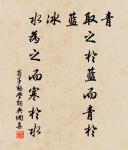 青
取之於藍而青於
藍
冰
水為之而寒於水
荀子勸學詞典網集